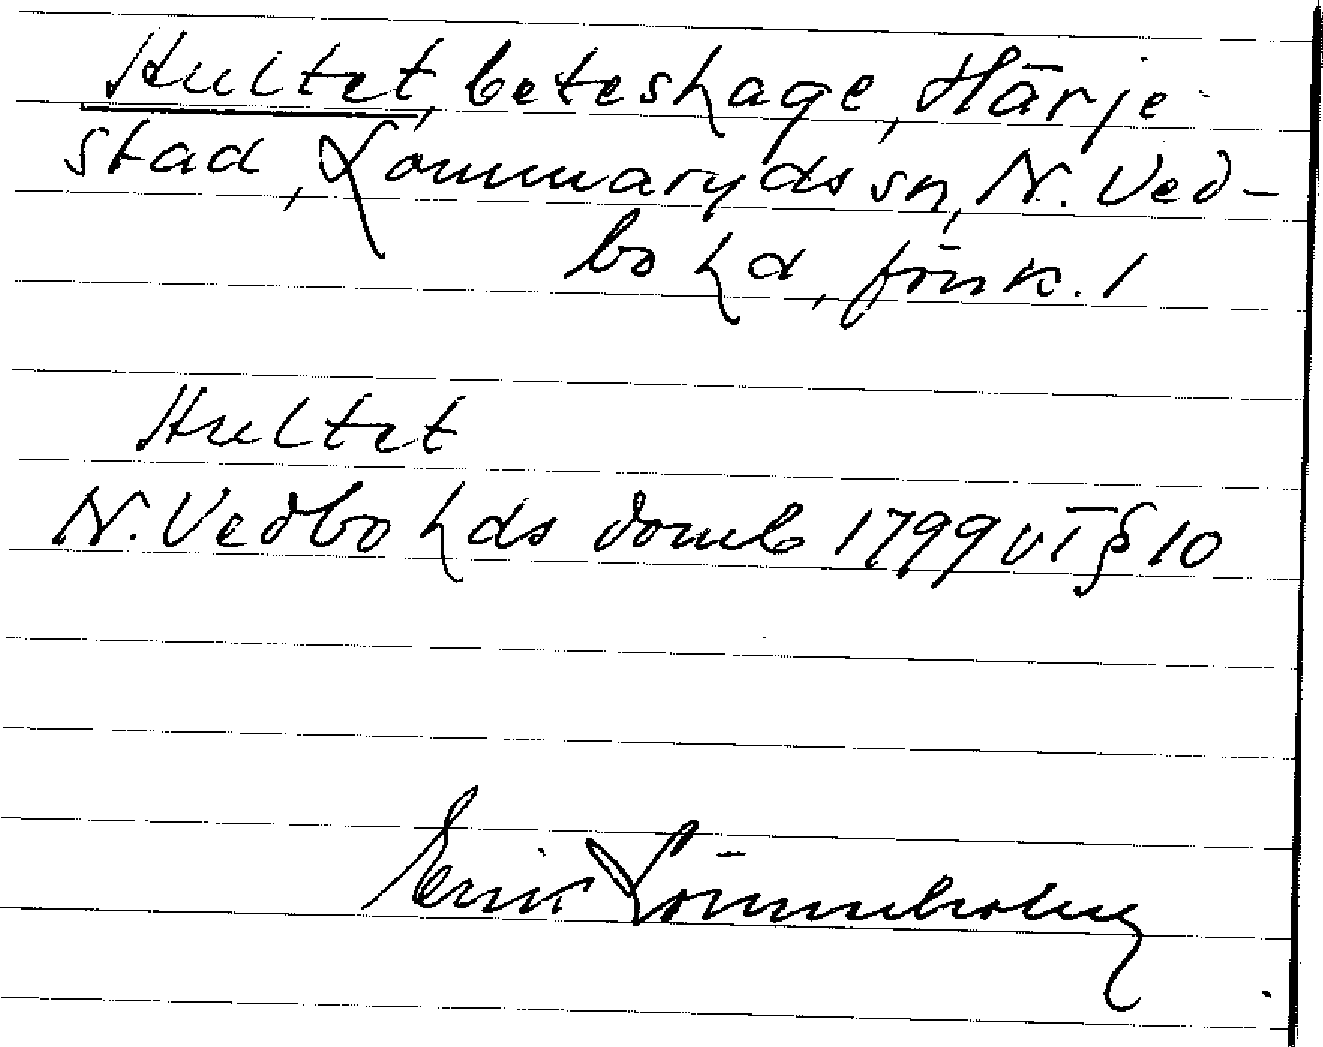 Hultet, beteshage, Härje-
stad, Lommaryds sn, N. Ved-
bo hd, Jönk. l
Hultet
N. Vedbo hds domb 1799 VT § 10
Erik Lönnerholm